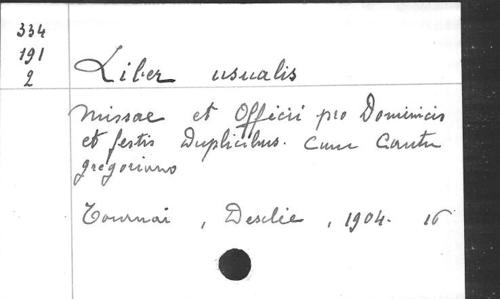 334
191
2
Liber usualis
missae et Officii pro Dominicis
et festis Duplicibus. Cum Cantu
gregoriano
Tournai, Desclée, 1904. 16